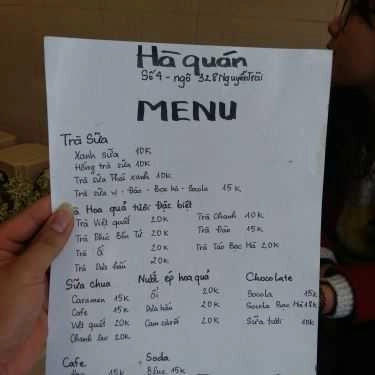 Hà quán
Số 4 - ngõ 328 Nguyễn Trãi
MENU
Trà Sữa
Xanh sữa 10K
Hồng trà sữa 10K
Trà sữa Thái xanh 10K
Trà sữa vị - Dâu - Bạc hà - Socola 15K
Hoa quả tươi Đặc biệt
Trà Việt quất 20K
Trà Phúc Bồn Tử 20K
Trà Ổi 20K
Trà Dưa hấu 20K
Trà Chanh 10K
Trà Đào 15K
Trà Táo Bạc Hà 20K
Sữa chua
Caramen 15K
Cafe 15K
Việt quất 20K
Chanh leo 20K
Nước ép hoa quả
Ổi 20K
Dưa hấu 20K
Cam cà rốt 20K
Chocolate
Socola 15K
Socola Bạc Hà 18K
Sữa tươi 10K
Cafe
Soda
Blue 15K